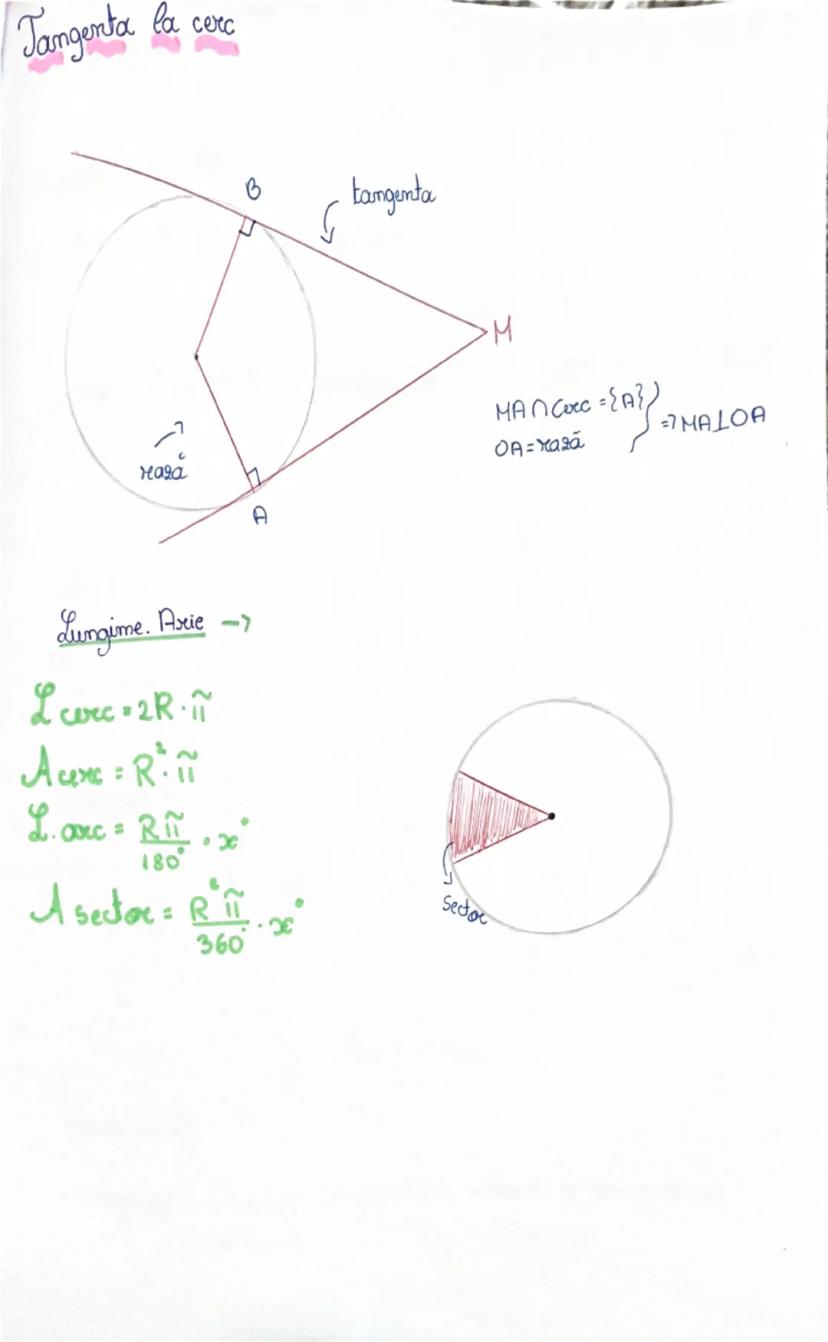 Tangenta la cerc
B
tangenta
M
MA∩Cerc = {A}
OA = rază
} => MA⊥OA
rază
A
Lungime. Arie →
L cerc = 2R·π
A cerc = R²·π
L. arc = Rπ/180° · x°
A sector = R²π/360° · x°
Sector